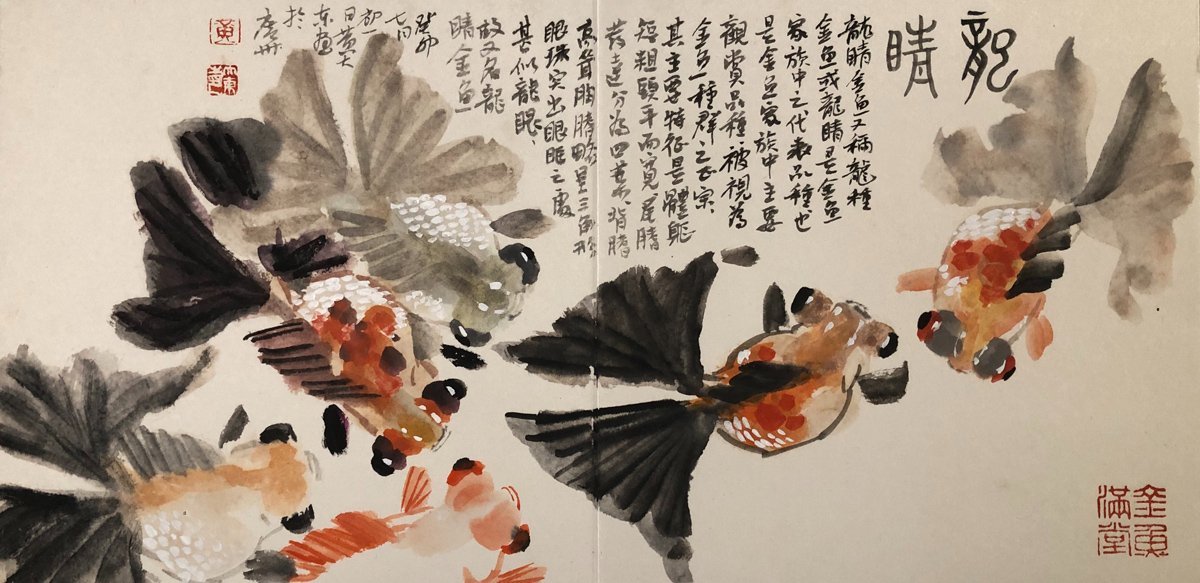 龍睛
龍睛金魚又稱龍種
金魚或龍睛是金魚
家族中之代表品種也
是金魚家族中主要
觀賞品種被視為
金魚種群之正宗
其主要特征是體軀
短粗頭平而寬尾鰭
發達分為四葉背鰭
高聳胸鰭略呈三角形
眼球突出眼眶之處
甚似龍眼、
故又名龍
睛金魚
癸卯
七月
初一
日黃大
東畫
於
廣州
黃
金魚
滿堂